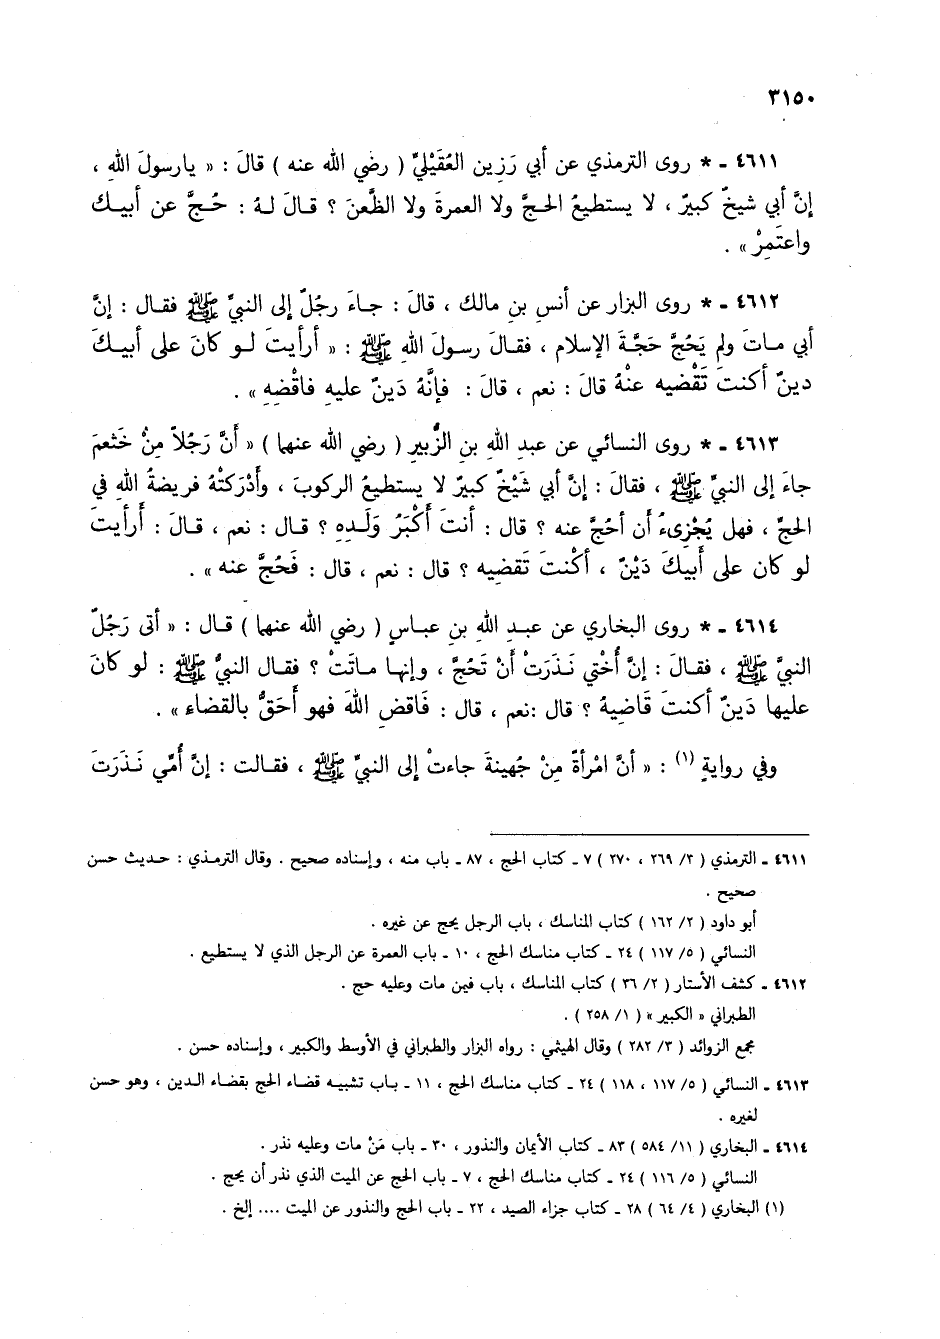 ٣١٥٠
٤٦١١ ـ * روى الترمذي عن أبي رَزِين العُقَيْليِّ ( رضي الله عنه ) قالَ : « يارسولَ اللهِ ،
إنَّ أبي شيخٌ كبيرٌ ، لا يستطيعُ الحـجَّ ولا العمرةَ ولا الظَّعنَ ؟ قـالَ لـهُ : حُـجَّ عن أبيـكَ
واعتَمِرْ » .
٤٦١٢ ـ * روى البزار عن أنسِ بنِ مالك ، قالَ : جـاءَ رجُلٌ إلى النبيِّ ﷺ فقـال : إنَّ
أبي مـاتَ ولم يَحُجَّ حَجَّـةَ الإسلام ، فقـالَ رسـولَ اللهِ ﷺ : « أرأيتَ لـو كانَ على أبيـكَ
دينٌ أكنتَ تَقْضيه عنْهُ قالَ : نعم ، قالَ : فإنَّهُ دَينٌ عليهِ فاقْضِهِ » .
٤٦١٣ ـ * روى النسائي عن عبدِ اللهِ بنِ الزُّبيرِ ( رضي الله عنهما ) « أنَّ رَجُلاً مِنْ خَثعمَ
جاءَ إلى النبيِّ ﷺ ، فقالَ : إنَّ أبي شَيْخٌ كبيرٌ لا يستطيعُ الركوبَ ، وأَدْرَكتْهُ فريضةُ اللهِ في
الحجِّ ، فهل يُجْزىءُ أن أحُجَّ عنه ؟ قال : أنتَ أَكْبَرُ وَلَـدِهِ ؟ قـال : نعم ، قـالَ : أَرأيتَ
لو كان على أَبيكَ دَيْنٌ ، أكُنْتَ تَقضيه ؟ قال : نعم ، قال : فَحُجَّ عنه » .
٤٦١٤ ـ * روى البخاري عن عبـدِ اللهِ بنِ عبـاسٍ ( رضي الله عنهما ) قـال : « أتى رَجُلٌ
النبيَّ ﷺ ، فقـالَ : إنَّ أُختي نَـذَرَتْ أنْ تَحُجَّ ، وإنهـا مـاتَتْ ؟ فقـال النبيُّ ﷺ : لو كانَ
عليها دَينٌ أكنتَ قَاضِيهُ ؟ قال :نعم ، قال : فَاقضِ اللهَ فهو أَحَقُّ بالقضاء » .
وفي روايةٍ (١) : « أنَّ امْرأةً مِنْ جُهينةَ جاءتْ إلى النبيِّ ﷺ ، فقـالت : إنَّ أُمِّي نَـذَرَتَ
٤٦١١ ـ الترمذي ( ٣/ ٢٦٩ ، ٢٧٠ ) ٧ ـ كتاب الحج ، ٨٧ ـ باب منه ، وإسناده صحيح . وقال الترمـذي : حـديث حسن
صحيح .
أبو داود ( ٢/ ١٦٢ ) كتاب المناسك ، باب الرجل يحج عن غيره .
النسائي ( ٥/ ١١٧ ) ٢٤ ـ كتاب مناسك الحج ، ١٠ ـ باب العمرة عن الرجل الذي لا يستطيع .
٤٦١٢ ـ كشف الأستار ( ٢/ ٣٦ ) كتاب المناسك ، باب فيمن مات وعليه حج .
الطبراني « الكبير » ( ١/ ٢٥٨ ) .
مجمع الزوائد ( ٣/ ٢٨٢ ) وقال الهيثمي : رواه البزار والطبراني في الأوسط والكبير ، وإسناده حسن .
٤٦١٣ ـ النسائي ( ٥/ ١١٧ ، ١١٨ ) ٢٤ ـ كتاب مناسك الحج ، ١١ ـ بـاب تشبيـه قضـاء الحج بقضـاء الـدين ، وهو حسن
لغيره .
٤٦١٤ ـ البخاري ( ١١/ ٥٨٤ ) ٨٣ ـ كتاب الأيمان والنذور ، ٣٠ ـ باب مَنْ مات وعليه نذر .
النسائي ( ٥/ ١١٦ ) ٢٤ ـ كتاب مناسك الحج ، ٧ ـ باب الحج عن الميت الذي نذر أن يحج .
(١) البخاري ( ٤/ ٦٤ ) ٢٨ ـ كتاب جزاء الصيد ، ٢٢ ـ باب الحج والنذور عن الميت .... إلخ .